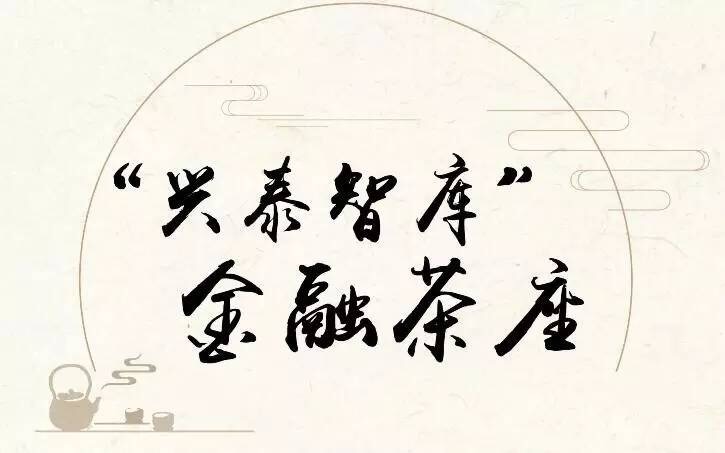 “兴泰智库”
金融茶座